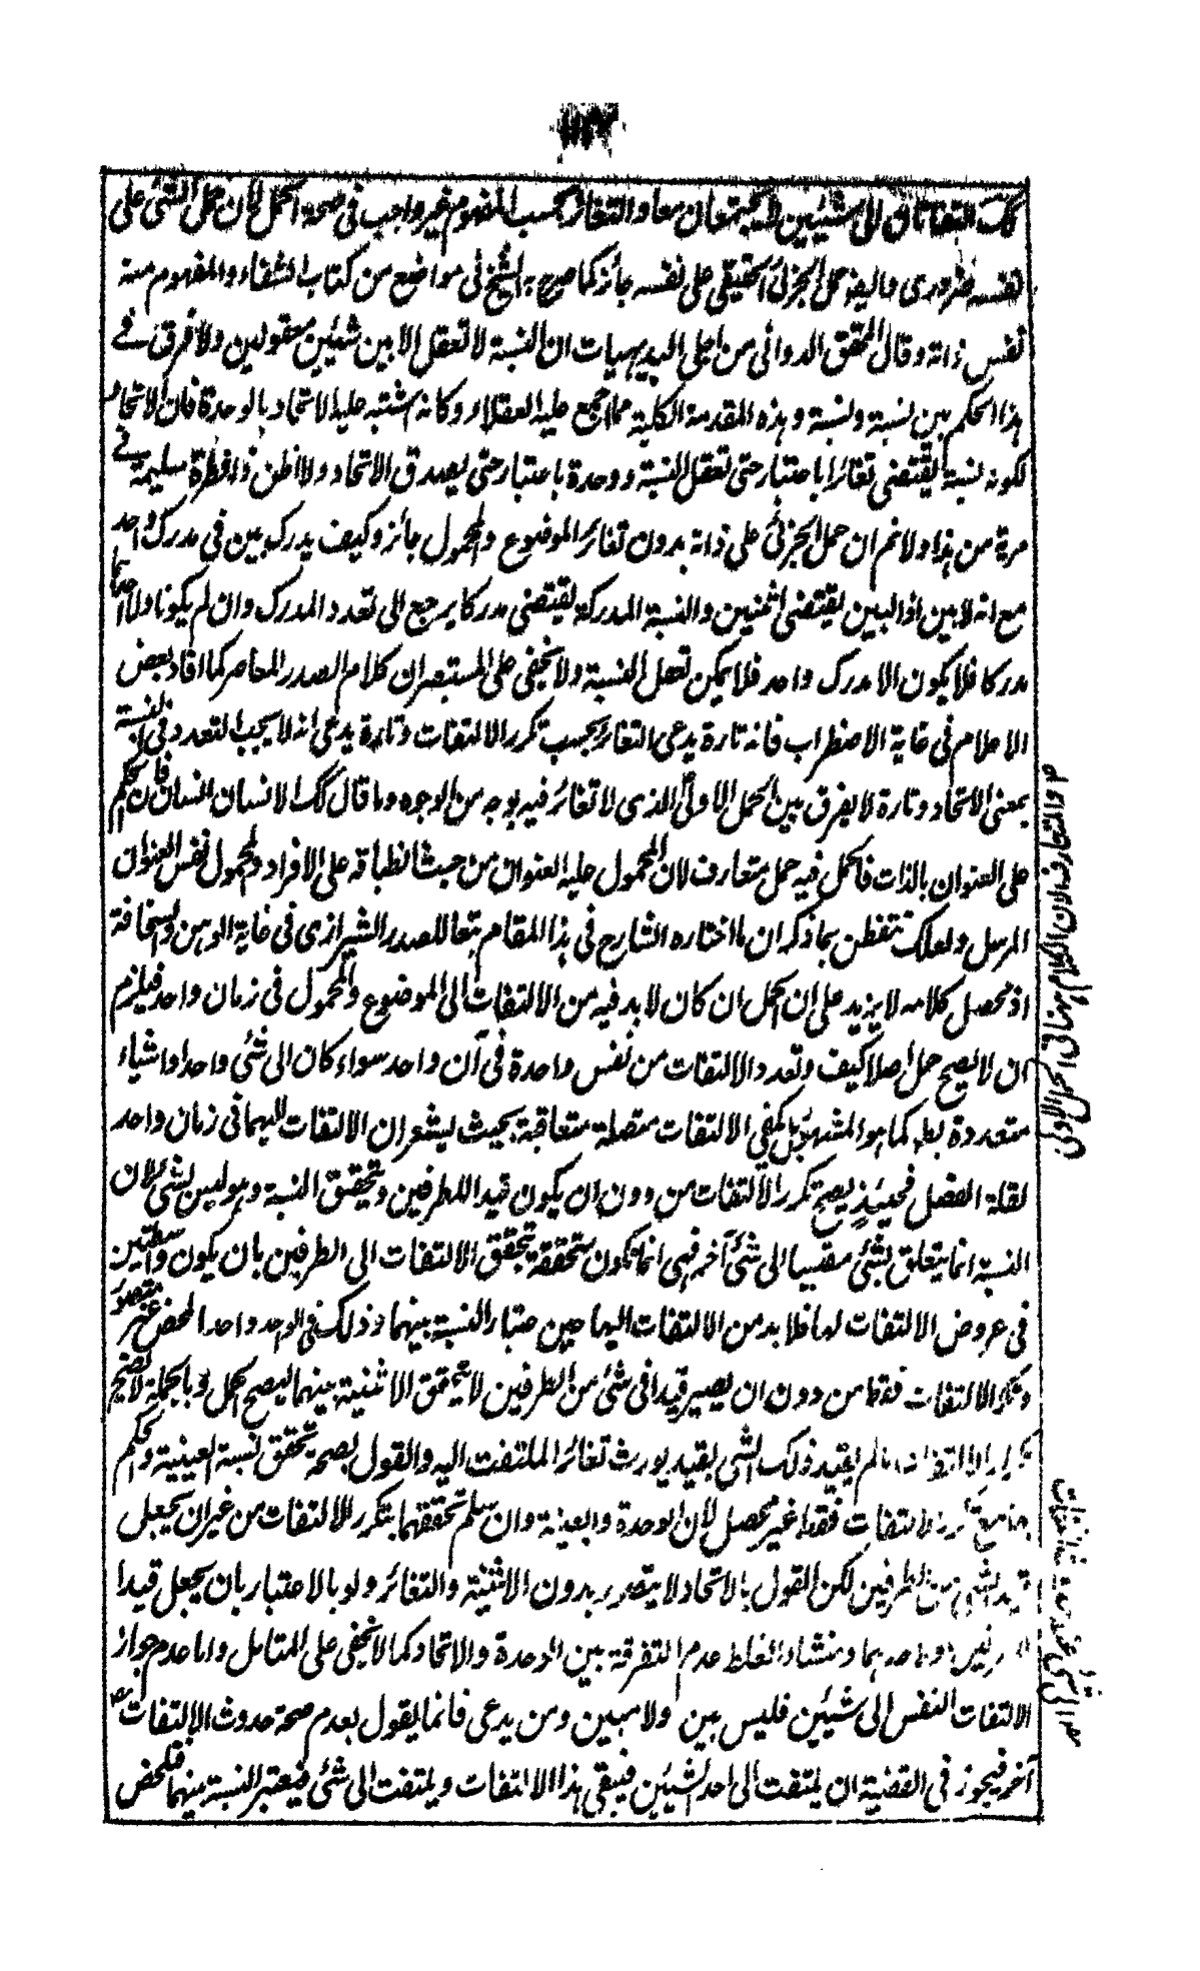 التفاتان الى شيئين لا يجتمعان معا والتغائر بحسب المفهوم غير واجب فى صحة الحمل لان حمل الشئ على
نفسه ضرورى وايضا حمل الجزئى الحقيقى على نفسه جائز كما صرح به الشيخ فى مواضع من كتاب الشفاء والمفهوم منه
نفس ذاته وقال المحقق الدوانى من اجلى البديهيات ان النسبة لا تعقل الا بين شيئين معقولين ولا فرق فے
هذا الحكم بين نسبة ونسبة وهذه المقدمة الكلية مما اجمع عليه العقلاء وكانه اشتبه عليه الاتحاد بالوحدة فان الاتحاد
لكونه نسبة يقتضى تغائرا باعتبار حتى تعقل النسبة ووحدة باعتبار حتى يصدق الاتحاد ولا اظن ذا فطرة سليمة فے
مرية من هذا ولا نم ان حمل الجزئى على ذاته بدون تغائر الموضوع والمحمول جائز وكيف يدرك بين فى مدرك واحد
مع انه لا بين اذ البين يقتضى اثنين والنسبة المدركة يقتضى مدركا يرجع الى تعدد المدرك وان لم يكونا ولا احدهما
مدركا فلا يكون الا مدرك واحد فلا يمكن تعقل النسبة ولا يخفى على المستبصر ان كلام الصدر المعاصر كما افاد بعض
الاعلام فى غاية الاضطراب فانه تارة يدعى التغائر بحسب تكرر الالتفات وتارة يدعى انه لا يجب التعدد فى النسبة
بمعنى الاتحاد وتارة لا يفرق بين الحمل الاولى الذى لا تغائر فيه بوجه من الوجوه وما قال كك الانسان انسان فان الحكم
على العنوان بالذات فالحمل فيه حمل متعارف لان المحمول عليه العنوان من حيث انطباقه على الافراد والمحمول نفس العنوان
المرسل ولعلك تتفطن بما ذكر ان ما اختاره الشارح فى هذا المقام تبعا للصدر الشيرازى فى غاية الوهن والسخافة
اذ محصل كلامه لا يزيد على ان الحمل ان كان لا بد فيه من الالتفات الى الموضوع والمحمول فى زمان واحد فيلزم
ان لا يصح حمل اصلا كيف وتعدد الالتفات من نفس واحدة فى آن واحد سواء كان الى شئ واحد او اشياء
متعددة بط كما هو المشهور بل يكفى الالتفات متصلة متعاقبة بحيث يشعر ان الالتفات اليهما فى زمان واحد
لقلة الفصل فحينئذ يصح تكرر الالتفات من دون ان يكون قيد اللطرفين وتحقق النسبة وهو ليس بشئ لان
النسبة انما يتعلق بشئ مقيسا الى شئ آخر فهى انما تكون متحققة بتحقق الالتفات الى الطرفين بان يكون واسطتين
فى عروض الالتفات لها فلا بد من الالتفات اليها حين اعتبار النسبة بينهما وذلك فى الواحد واحدا لمحض غير متصور
وتكرر الالتفات فقط من دون ان يصير قيدا فى شئ من الطرفين لا يحقق الاثنينية بينهما ليصح الحمل وبالجملة لا يصح
تكرار الالتفات ما لم يقيد ذلك الشى بقيد يورث تغائر الملتفت اليه والقول بصحة تحقق نسبة العينية والحكم
بها مع تكرر الالتفات فقط غير محصل لان الوحدة والعينية وان سلم تحققهما بتكرر الالتفات من غير ان يجعل
قيد الشئ من الطرفين لكن القول بالاتحاد لا يتصور بدون الاثنينية والتغائر ولو بالاعتبار بان يجعل قيدا
للطرفين او لاحدهما ومنشاء الغلط عدم التفرقة بين الوحدة والاتحاد كما لا يخفى على المتامل واما عدم جواز
الالتفات النفس الى شيئين فليس بين ولا مبين ومن يدعى فانما يقول بعدم صحة حدوث الالتفات
آخر فيجوز فى القضية ان يلتفت الى احد الشيئين فيبقى هذا الالتفات ويلتفت الى شئ فيعتبر النسبة بينهما فلمحض
والمتعارف لان الكلام ههنا فى الحمل الاولى